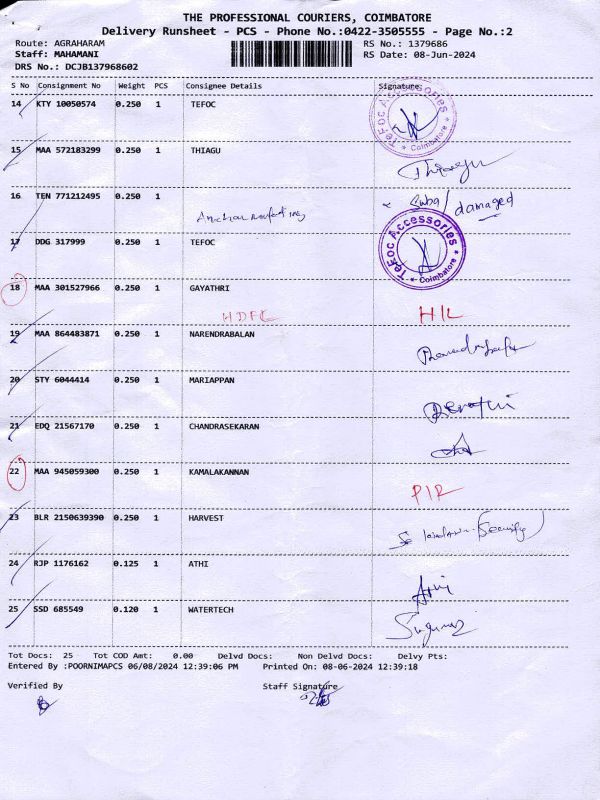 THE PROFESSIONAL COURIERS, COIMBATORE
Delivery Runsheet - PCS - Phone No.:0422-3505555 - Page No.:2
Route: AGRAHARAM RS No.: 1379686
Staff: MAHAMANI RS Date: 08-Jun-2024
DRS No.: DCJB137968602
S No Consignment No Weight PCS Consignee Details Signature
14 KTY 10050574 0.250 1 TEFOC
TeFoc Accessories * Coimbatore *
15 MAA 572183299 0.250 1 THIAGU
Thiagu
16 TEN 771212495 0.250 1
damaged
17 DDG 317999 0.250 1 TEFOC
TeFoc Accessories * Coimbatore *
18 MAA 301527966 0.250 1 GAYATHRI
HDFC H/L
19 MAA 864483871 0.250 1 NARENDRABALAN
20 STY 6044414 0.250 1 MARIAPPAN
21 EDQ 21567170 0.250 1 CHANDRASEKARAN
22 MAA 945059300 0.250 1 KAMALAKANNAN
P/R
23 BLR 2150639390 0.250 1 HARVEST
(Security)
24 RJP 1176162 0.125 1 ATHI
Athi
25 SSD 685549 0.120 1 WATERTECH
Tot Docs: 25 Tot COD Amt: 0.00 Delvd Docs: Non Delvd Docs: Delvy Pts:
Entered By :POORNIMAPCS 06/08/2024 12:39:06 PM Printed On: 08-06-2024 12:39:18
Verified By Staff Signature